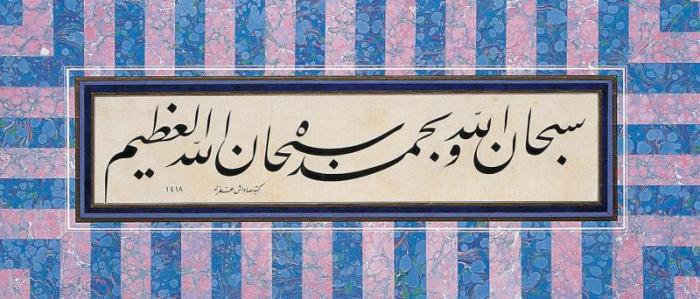 سبحان الله وبحمده سبحان الله العظيم
١٤١٨